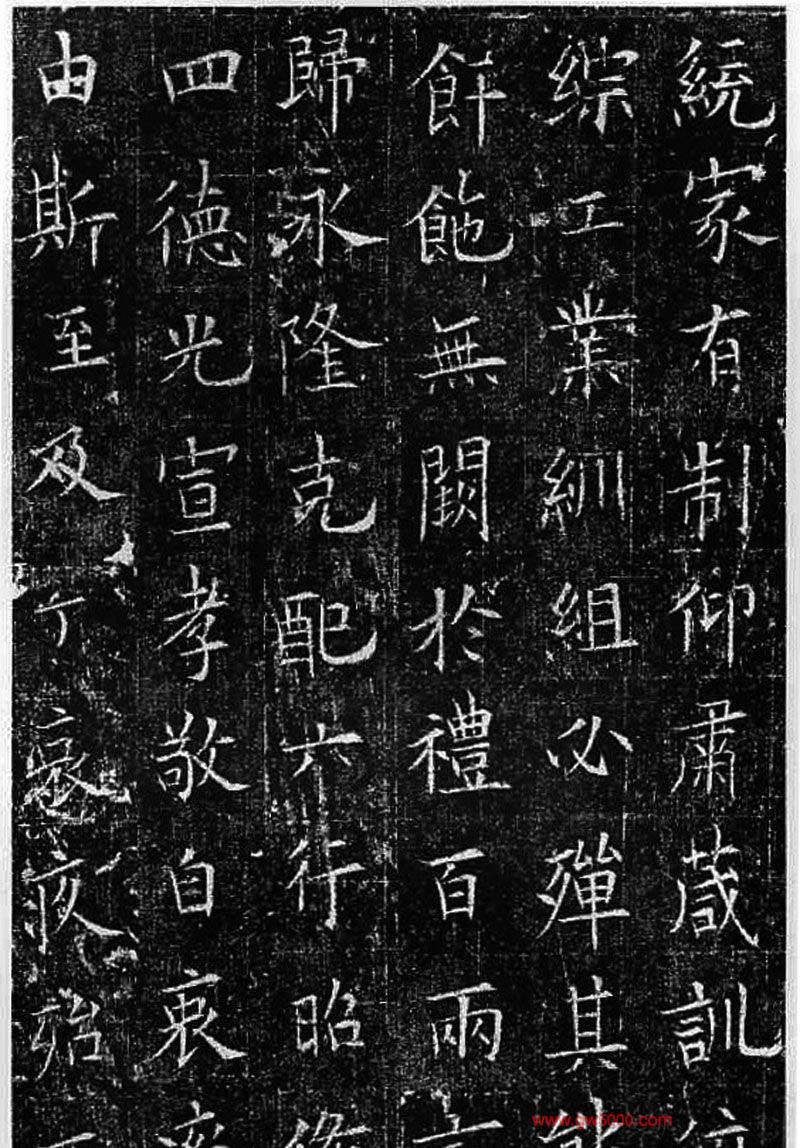 統家有制仰肅蒇訓
綜工業紃組必殫其
餅飿無闕於禮百兩
歸永隆克配六行昭
四德光宣孝敬自衷
由斯至及丁哀疚殆
www.gw5000.com